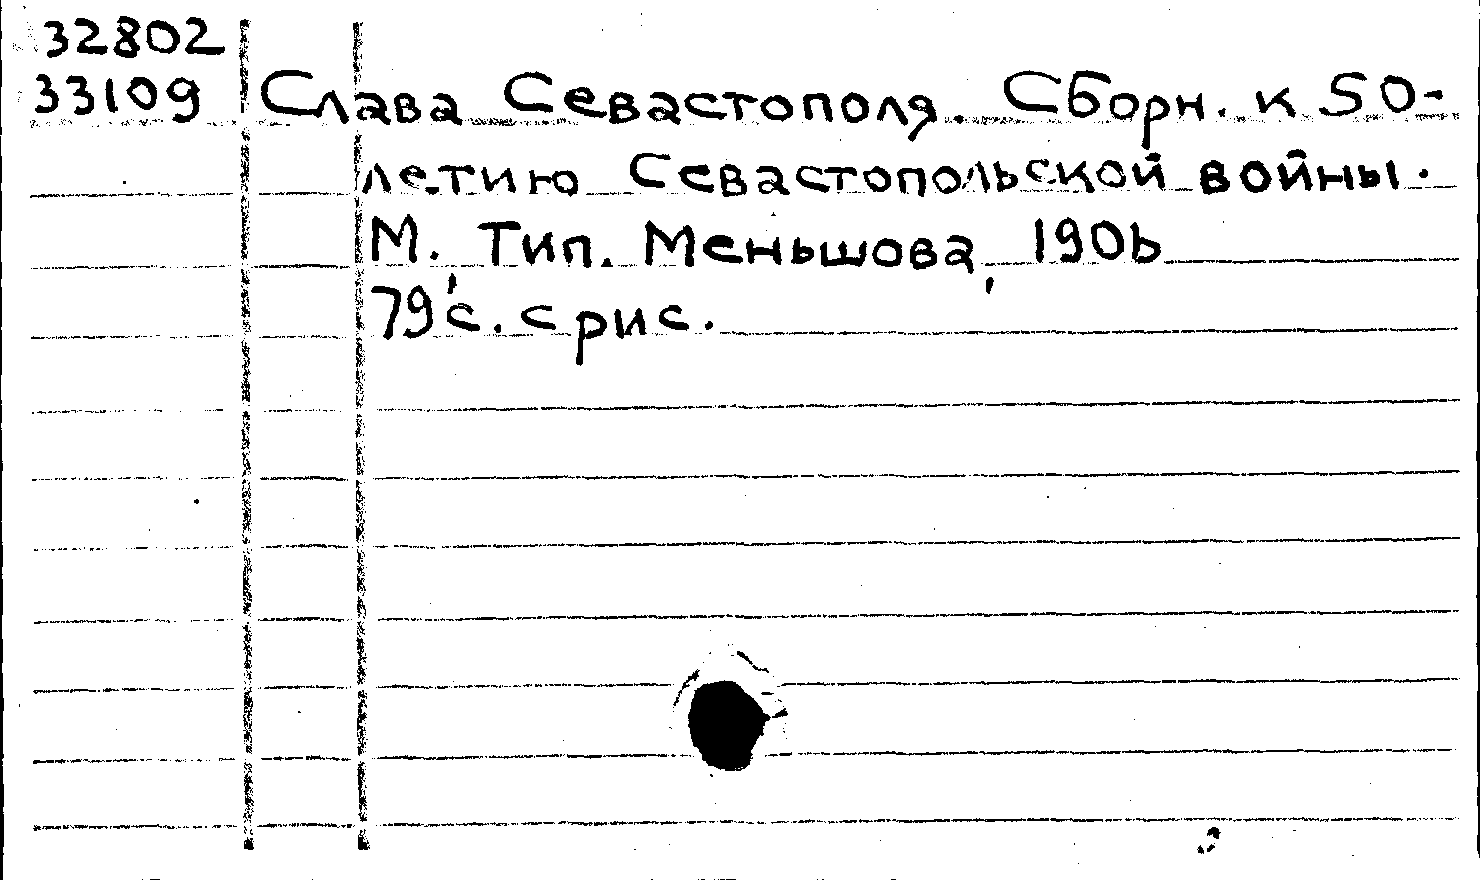 32802
33109 Слава Севастополя. Сборн. к 50-
летию Севастопольской войны.
М., Тип. Меньшова, 1906
79 с. с рис.